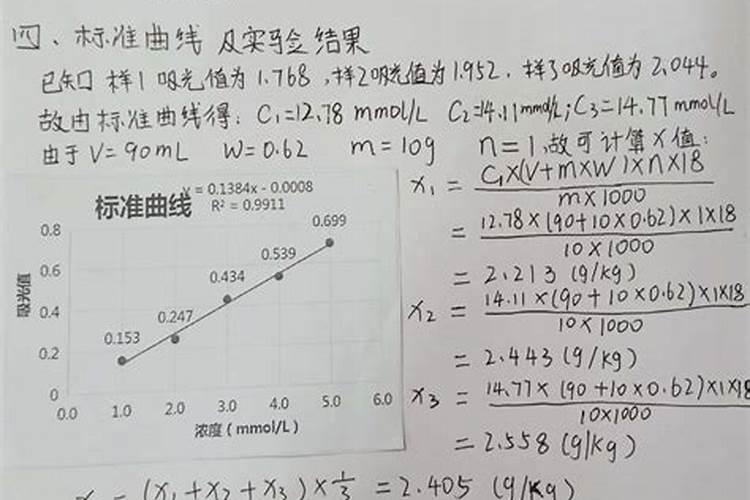 四、标准曲线及实验结果
已知样1吸光值为1.768，样2吸光值为1.952，样3吸光值为2.044。
故由标准曲线得：C₁=12.78 mmol/L C₂=14.11mmol/L；C₃=14.77mmol/L
由于V=90mL W=0.62 m=10g n=1，故可计算X值：
标准曲线
y = 0.1384x - 0.0008
R² = 0.9911
0.8
0.6
0.4
0.2
0
吸光值
0.153
0.247
0.434
0.539
0.699
0.0 1.0 2.0 3.0 4.0 5.0 6.0
浓度（mmol/L）
x₁ = C₁×(V+m×W)×n×18
m×1000
= 12.78×(90+10×0.62)×1×18
10×1000
= 2.213 (g/kg)
x₂ = 14.11×(90+10×0.62)×1×18
10×1000
= 2.443 (g/kg)
x₃ = 14.77×(90+10×0.62)×1×18
10×1000
= 2.558 (g/kg)
= (x₁+x₂+x₃)×1/3 = 2.405 (g/kg)